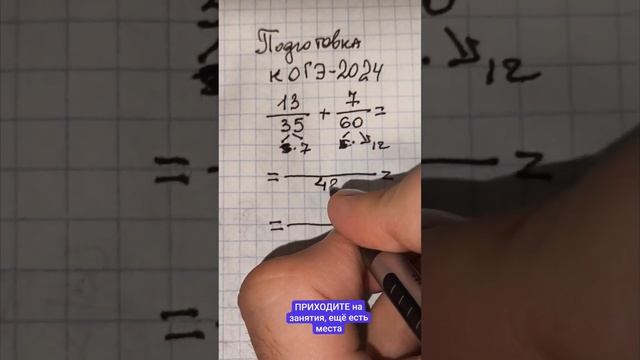 Подготовка
к ОГЭ-2024
13/35 + 7/60 =
5 · 7 5 · 12
= 42
=
ПРИХОДИТЕ на
занятия, ещё есть
места